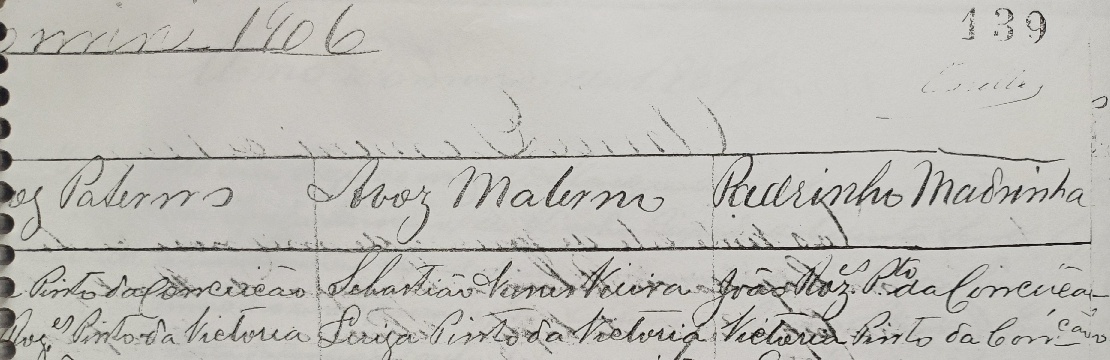 1906
139
Paternos Avoz Materno Padrinho Madrinha
Pinto da Conceicão Sebastião Nunes Vieira João Roz.es P.to da Conceicão
Roz.es Pinto da Victoria Luiza Pinto da Victoria Victoria Pinto da Con.cão